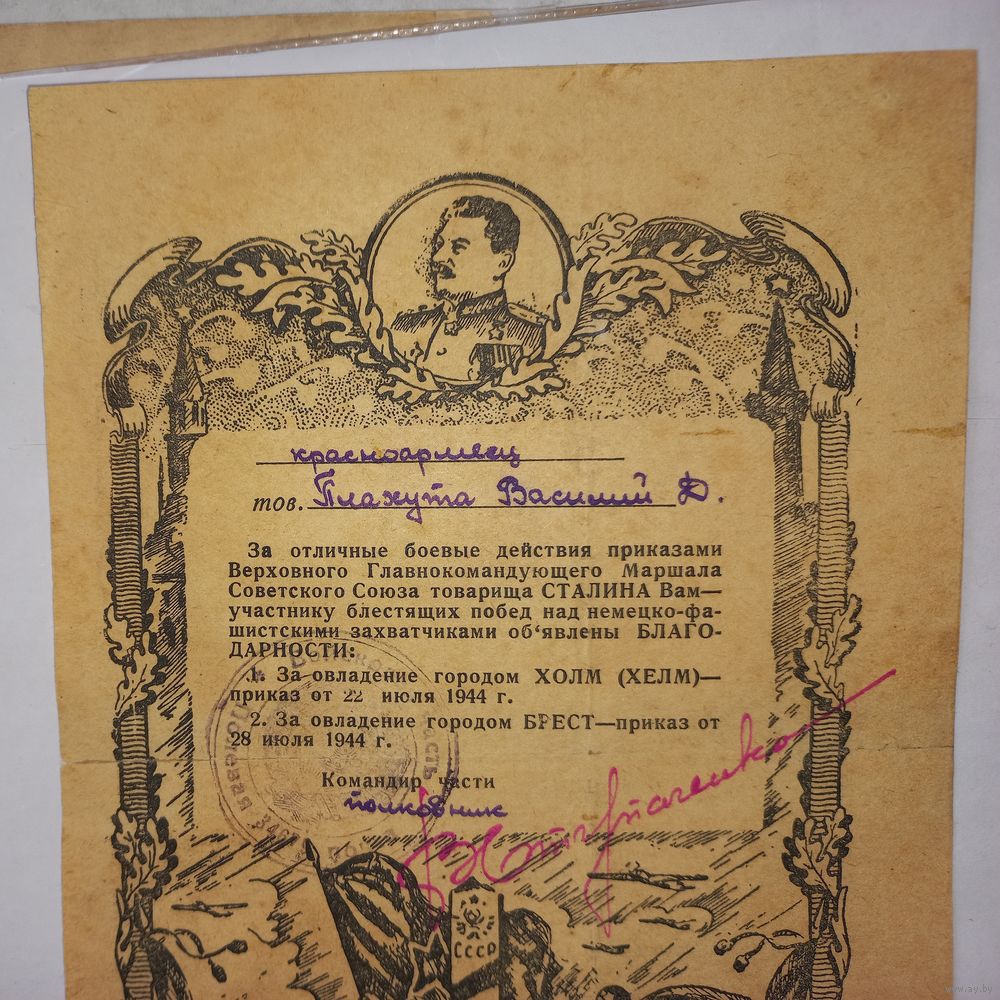 красноармеец
тов. Плахута Василий Д.
За отличные боевые действия приказами
Верховного Главнокомандующего Маршала
Советского Союза товарища СТАЛИНА Вам—
участнику блестящих побед над немецко-фа-
шистскими захватчиками об‘явлены БЛАГО-
ДАРНОСТИ:
1. За овладение городом ХОЛМ (ХЕЛМ)—
приказ от 22 июля 1944 г.
2. За овладение городом БРЕСТ—приказ от
28 июля 1944 г.
Командир части
полковник
Полевая
часть
СССР
www.ay.by